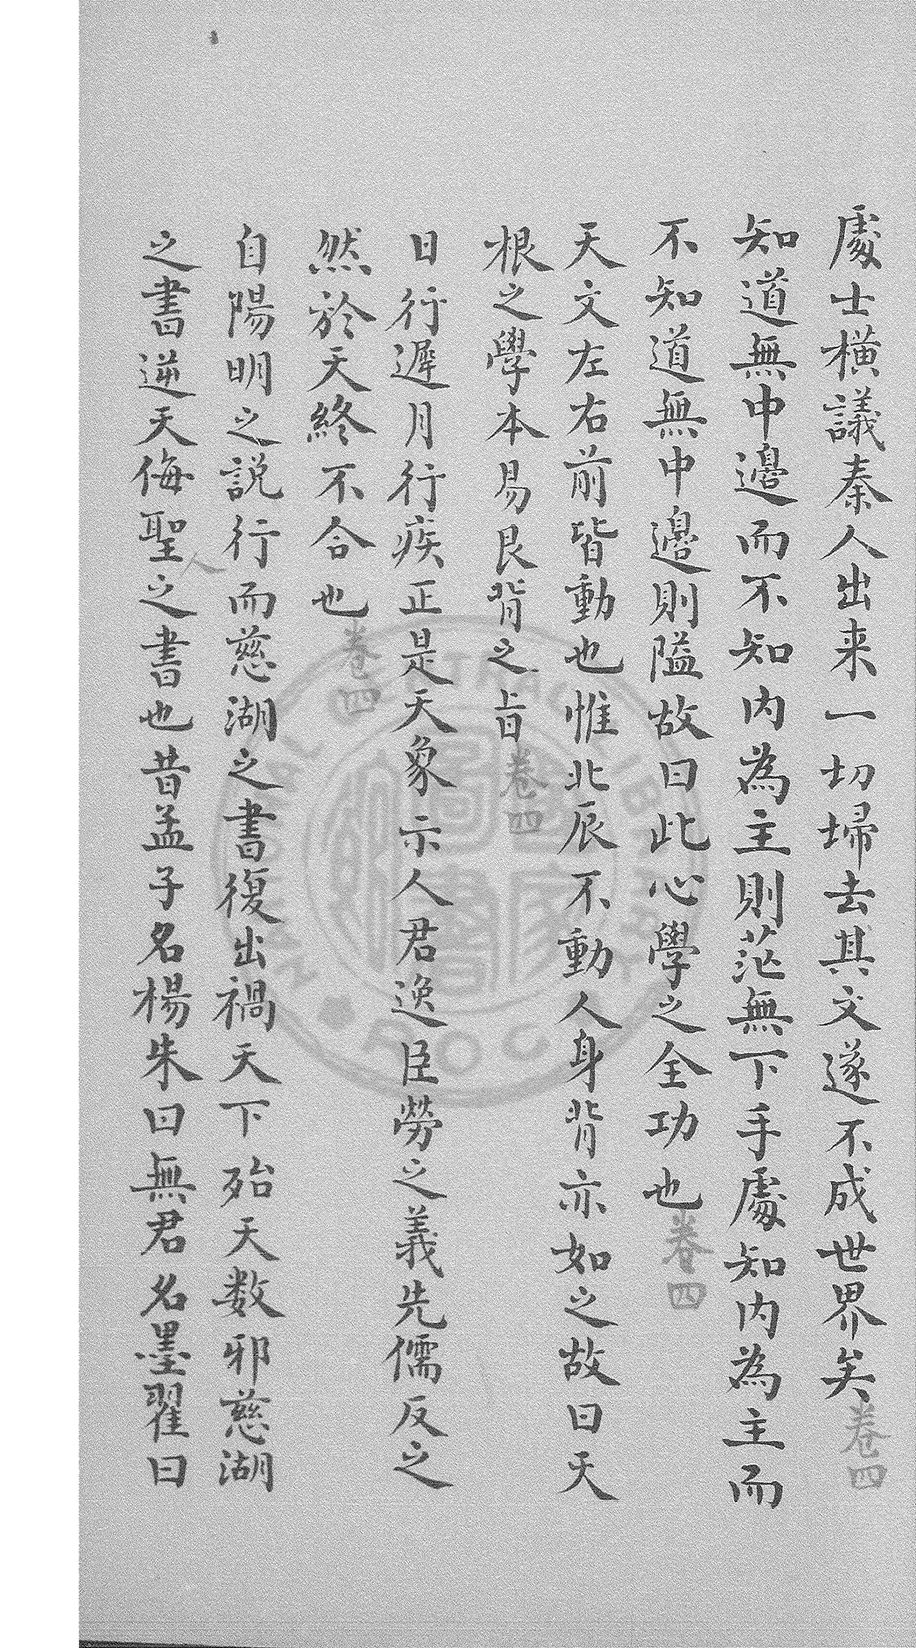 處士橫議秦人出来一切埽去其文遂不成世界矣卷四
知道無中邊而不知内為主則茫無下手處知内為主而
不知道無中邊則隘故曰此心學之全功也卷四
天文左右前皆動也惟北辰不動人身背亦如之故曰天
根之學本易艮背之旨卷四
日行遲月行疾正是天象示人君逸臣勞之義先儒反之
然於天終不合也卷四
自陽明之説行而慈湖之書復出禍天下殆天数邪慈湖
之書逆天侮聖人之書也昔孟子名楊朱曰無君名墨翟曰
國家圖書館
NATIONAL CENTRAL LIBRARY
R.O.C.